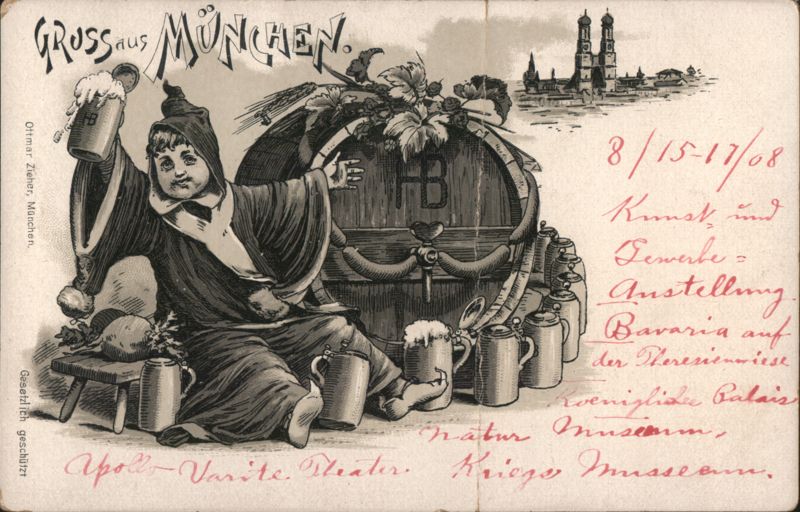 GRUSS aus MÜNCHEN.
HB
HB
Ottmar Zieher, München.
Gesetzlich geschützt
8/15-17/08
Kunst- und
Gewerbe=
Austellung
Bavaria auf
der Theresienwiese
Koenigliche Palais
Natur Museum,
Apollo Varite. Theater. Kriegs Musseum.